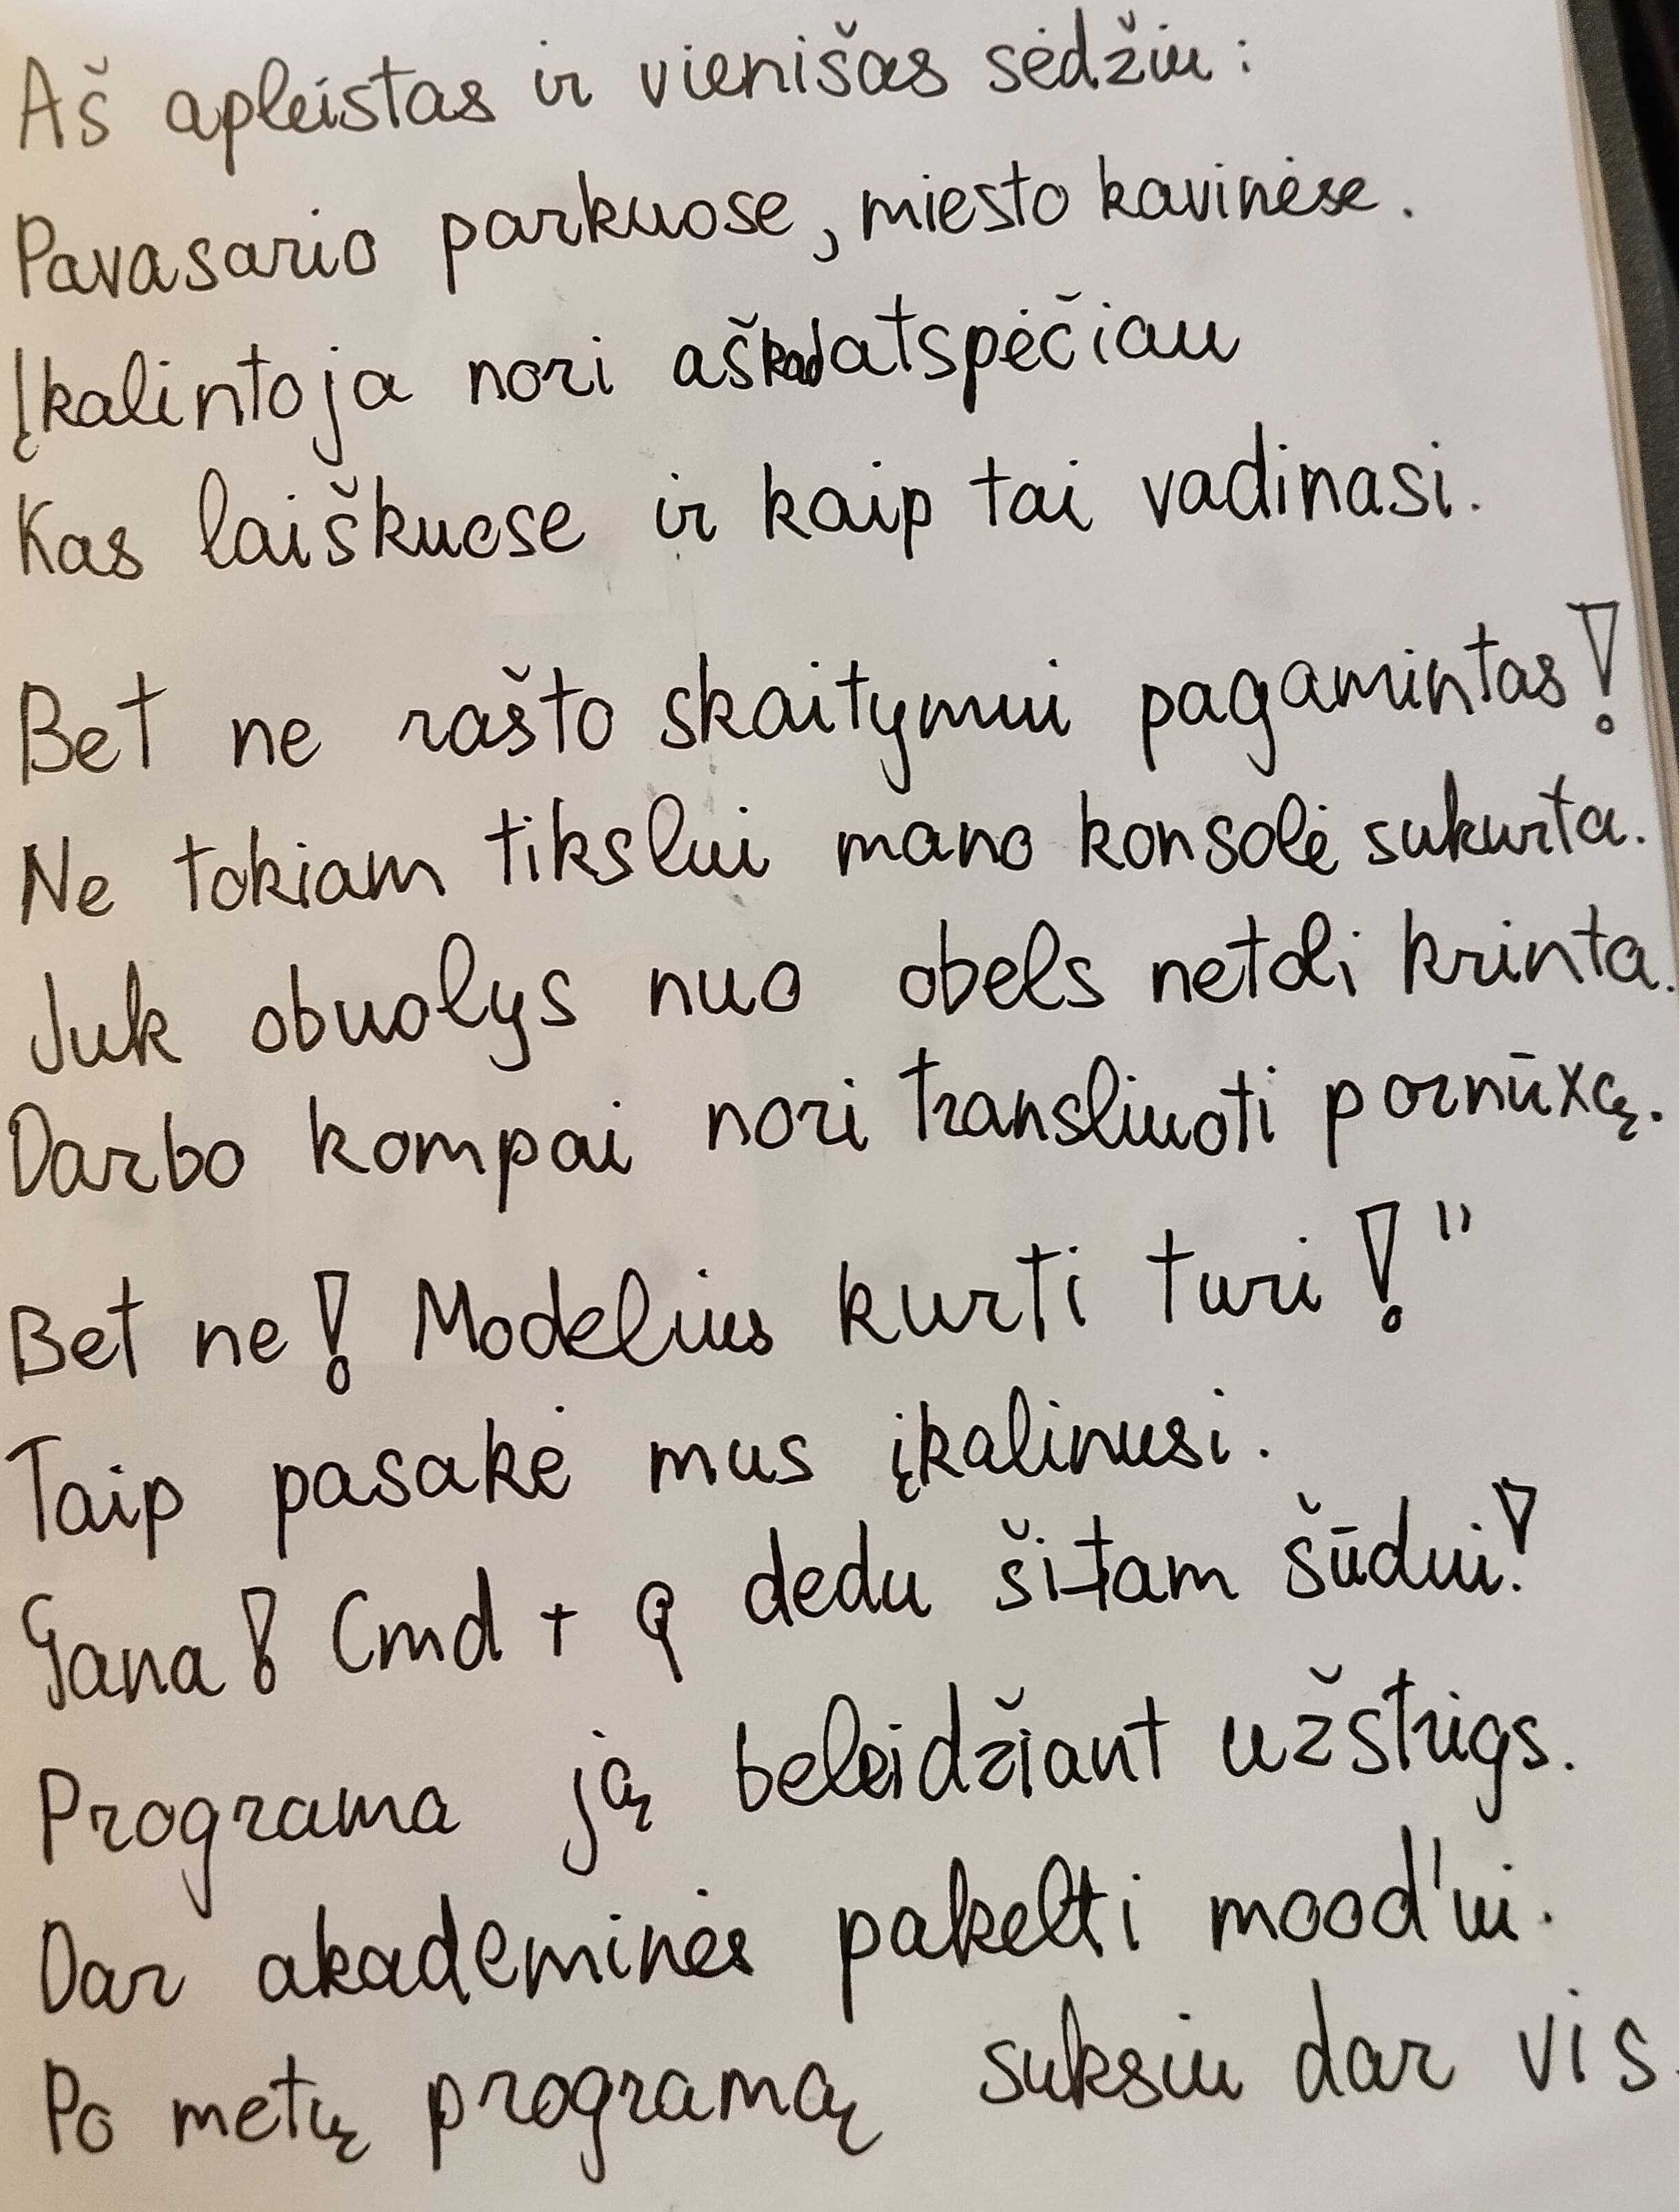 Aš apleistas ir vienišas sėdžiu:
Pavasario parkuose, miesto kavinėse.
Įkalintoja nori aš kad atspėčiau
Kas laiškuose ir kaip tai vadinasi.
Bet ne rašto skaitymui pagamintas!
Ne tokiam tikslui mano konsolė sukurta.
Juk obuolys nuo obels netoli krinta.
Darbo kompai nori transliuoti pornūxą.
Bet ne! Modelius kurti turi!"
Taip pasakė mus įkalinusi.
Gana! Cmd + Q dedu šitam šūdui!
Programa ją beleidžiant užstrigs.
Dar akademinės pakelti mood'ui.
Po metų programą suksiu dar vis.